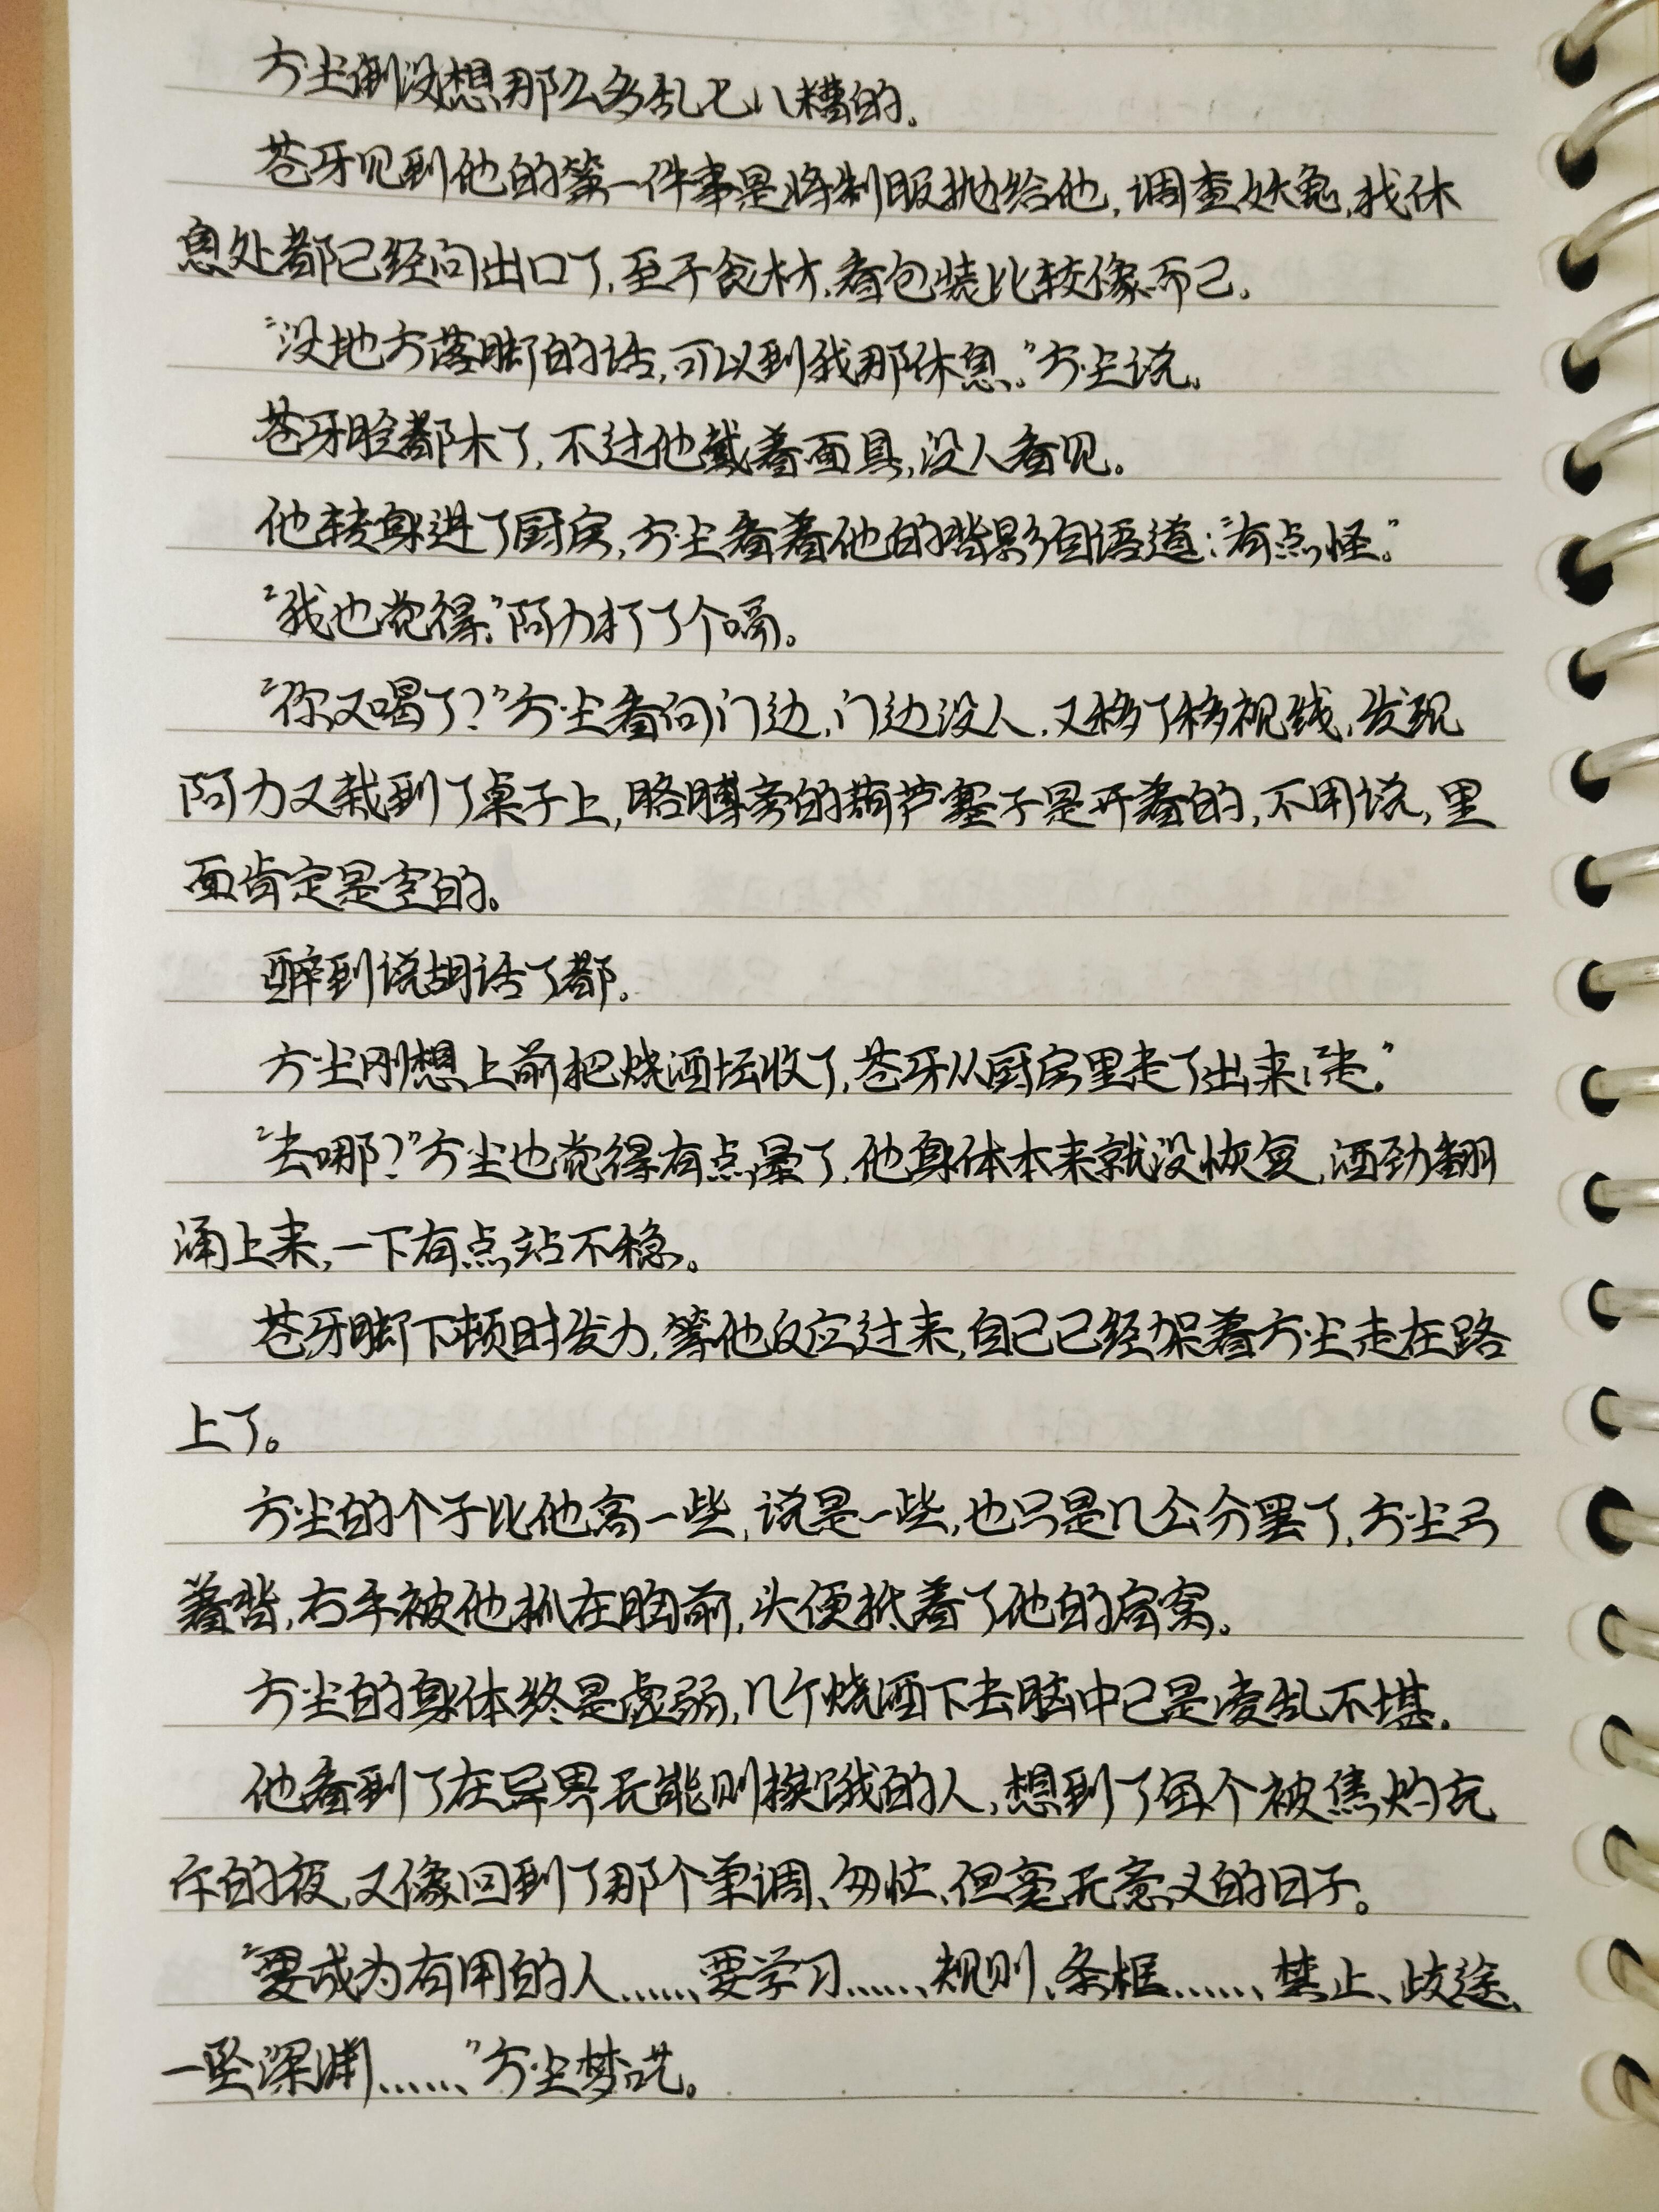 方尘倒没想那么多乱七八糟的。
苍牙见到他的第一件事是将制服抛给他,调查妖兔,找休
息处都已经问出口了,至于食材,看包装比较像而已。
“没地方落脚的话,可以到我那休息。”方尘说。
苍牙脸都木了,不过他戴着面具,没人看见。
他转身进了厨房,方尘看着他的背影自语道:“有点怪。”
“我也觉得。”阿力打了个嗝。
“你又喝了?”方尘看向门边,门边没人,又移了移视线,发现
阿力又栽到了桌子上,胳膊旁的葫芦塞子是开着的,不用说,里
面肯定是空的。
醉到说胡话了都。
方尘刚想上前把烧酒坛收了,苍牙从厨房里走了出来:“走。”
“去哪?”方尘也觉得有点晕了,他身体本来就没恢复,酒劲翻
涌上来,一下有点站不稳。
苍牙脚下顿时发力,等他反应过来,自己已经架着方尘走在路
上了。
方尘的个子比他高一些,说是一些,也只是几公分罢了,方尘弓
着背,右手被他抓在胸前,头便抵着了他的肩窝。
方尘的身体终是虚弱,几个烧酒下去脑中已是凌乱不堪。
他看到了在异界无能则挨饿的人,想到了每个被焦灼充
斥的夜,又像回到了那个单调、匆忙、但毫无意义的日子。
“要成为有用的人……要学习……规则、条框……禁止、歧途、
一坠深渊……”方尘梦呓。